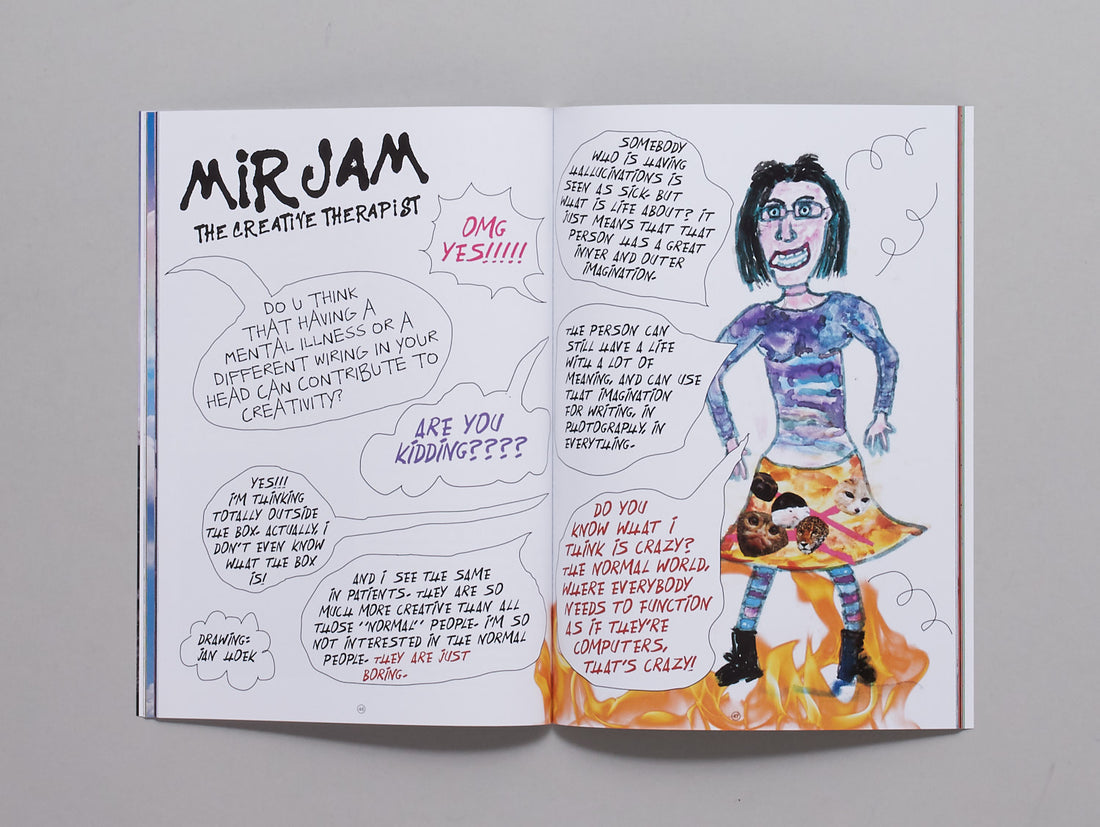 MIRJAM
THE CREATIVE THERAPIST
OMG
YES!!!!!
DO U THINK
THAT HAVING A
MENTAL ILLNESS OR A
DIFFERENT WIRING IN YOUR
HEAD CAN CONTRIBUTE TO
CREATIVITY?
ARE YOU
KIDDING????
YES!!!
I'M THINKING
TOTALLY OUTSIDE
THE BOX. ACTUALLY, I
DON'T EVEN KNOW
WHAT THE BOX
IS!
AND I SEE THE SAME
IN PATIENTS. THEY ARE SO
MUCH MORE CREATIVE THAN ALL
THOSE "NORMAL" PEOPLE. I'M SO
NOT INTERESTED IN THE NORMAL
PEOPLE. THEY ARE JUST
BORING.
DRAWING:
JAN HOEK
SOMEBODY
WHO IS HAVING
HALLUCINATIONS IS
SEEN AS SICK. BUT
WHAT IS LIFE ABOUT? IT
JUST MEANS THAT THAT
PERSON HAS A GREAT
INNER AND OUTER
IMAGINATION.
THE PERSON CAN
STILL HAVE A LIFE
WITH A LOT OF
MEANING, AND CAN USE
THAT IMAGINATION
FOR WRITING, IN
PHOTOGRAPHY, IN
EVERYTHING.
DO YOU
KNOW WHAT I
THINK IS CRAZY?
THE NORMAL WORLD,
WHERE EVERYBODY
NEEDS TO FUNCTION
AS IF THEY'RE
COMPUTERS,
THAT'S CRAZY!